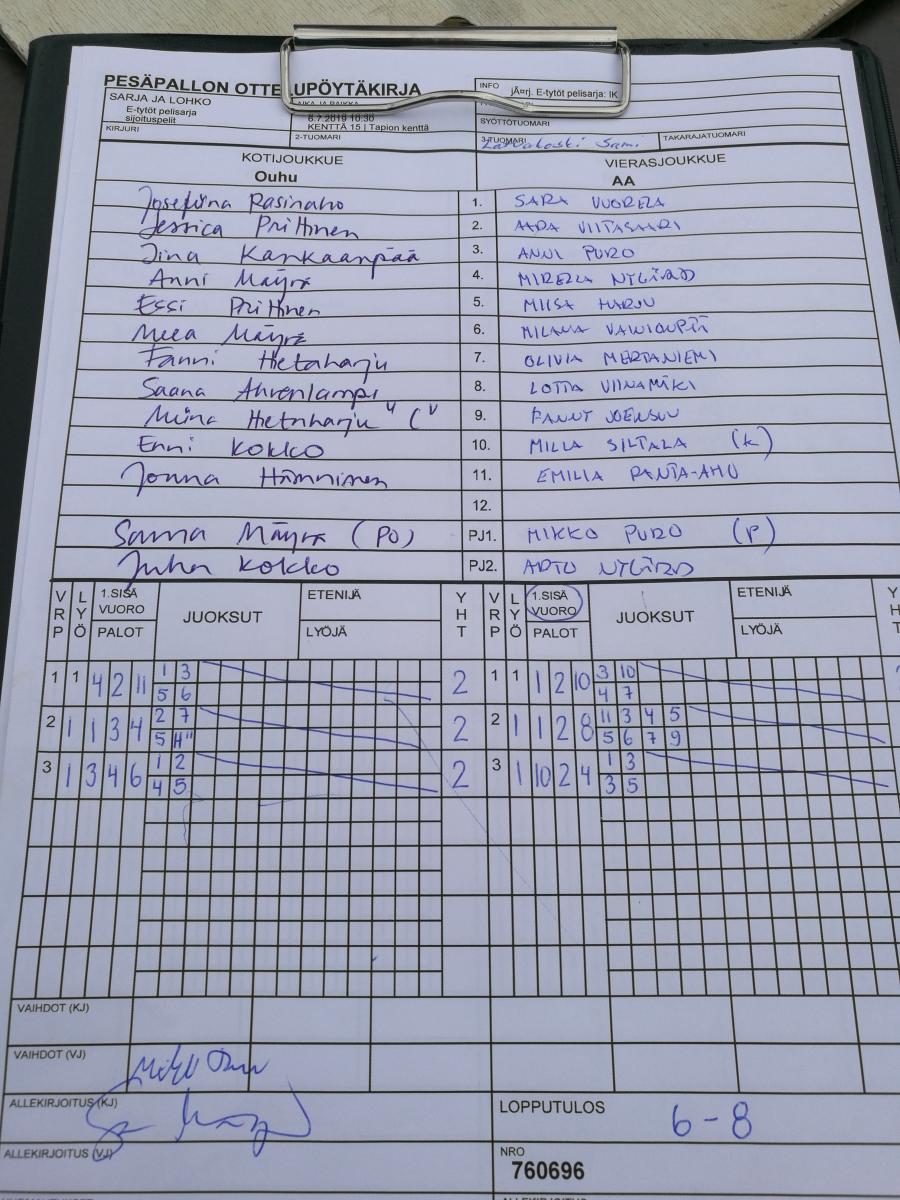 PESÄPALLON OTTELUPÖYTÄKIRJA
INFO jÃ¤rj. E-tytöt pelisarja: IK
SARJA JA LOHKO
E-tytöt pelisarja
sijoituspelit
AIKA JA PAIKKA
8.7.2019 10:30
KENTTÄ 15 | Tapion kenttä
SYÖTTÖTUOMARI
KIRJURI 2-TUOMARI 3-TUOMARI Sami TAKARAJATUOMARI
KOTIJOUKKUE VIERASJOUKKUE
Ouhu AA
Josefiina Rasinaho 1. SARA VUORELA
Jessica Prittinen 2. AADA VIITASAARI
Jina Kankaanpää 3. ANNI PURO
Anni Mäyrä 4. MIRELLA NYGÅRD
Essi Prittinen 5. MIISA HARJU
Meea Mäyrä 6. MILANA VAINIONPÄÄ
Fanni Hietaharju 7. OLIVIA MERTANIEMI
Saana Ahvenlampi 8. LOTTA VIINAMÄKI
Miina Hietaharju 9. FANNY JOENSUU
Enni Kokko 10. MILLA SILTALA (K)
Jonna Hänninen 11. EMILIA RANTA-AHO
12.
Sanna Mäyrä (PO) PJ1. MIKKO PURO (P)
Juha Kokko PJ2. ARTO NYGÅRD
VRP LYÖ 1.SISÄ VUORO PALOT JUOKSUT ETENIJÄ LYÖJÄ YHT VRP LYÖ 1.SISÄ VUORO PALOT JUOKSUT ETENIJÄ LYÖJÄ
1 1 4 2 11 1 3 2 1 1 1 2 10 3 10
5 6 4 7
2 1 1 3 4 2 7 2 2 1 1 2 8 11 3 4 5
5 H" 5 6 7 9
3 1 3 4 6 1 2 2 3 1 10 2 4 1 3
4 5 3 5
VAIHDOT (KJ)
VAIHDOT (VJ)
ALLEKIRJOITUS (KJ) LOPPUTULOS 6-8
ALLEKIRJOITUS (VJ) NRO
760696